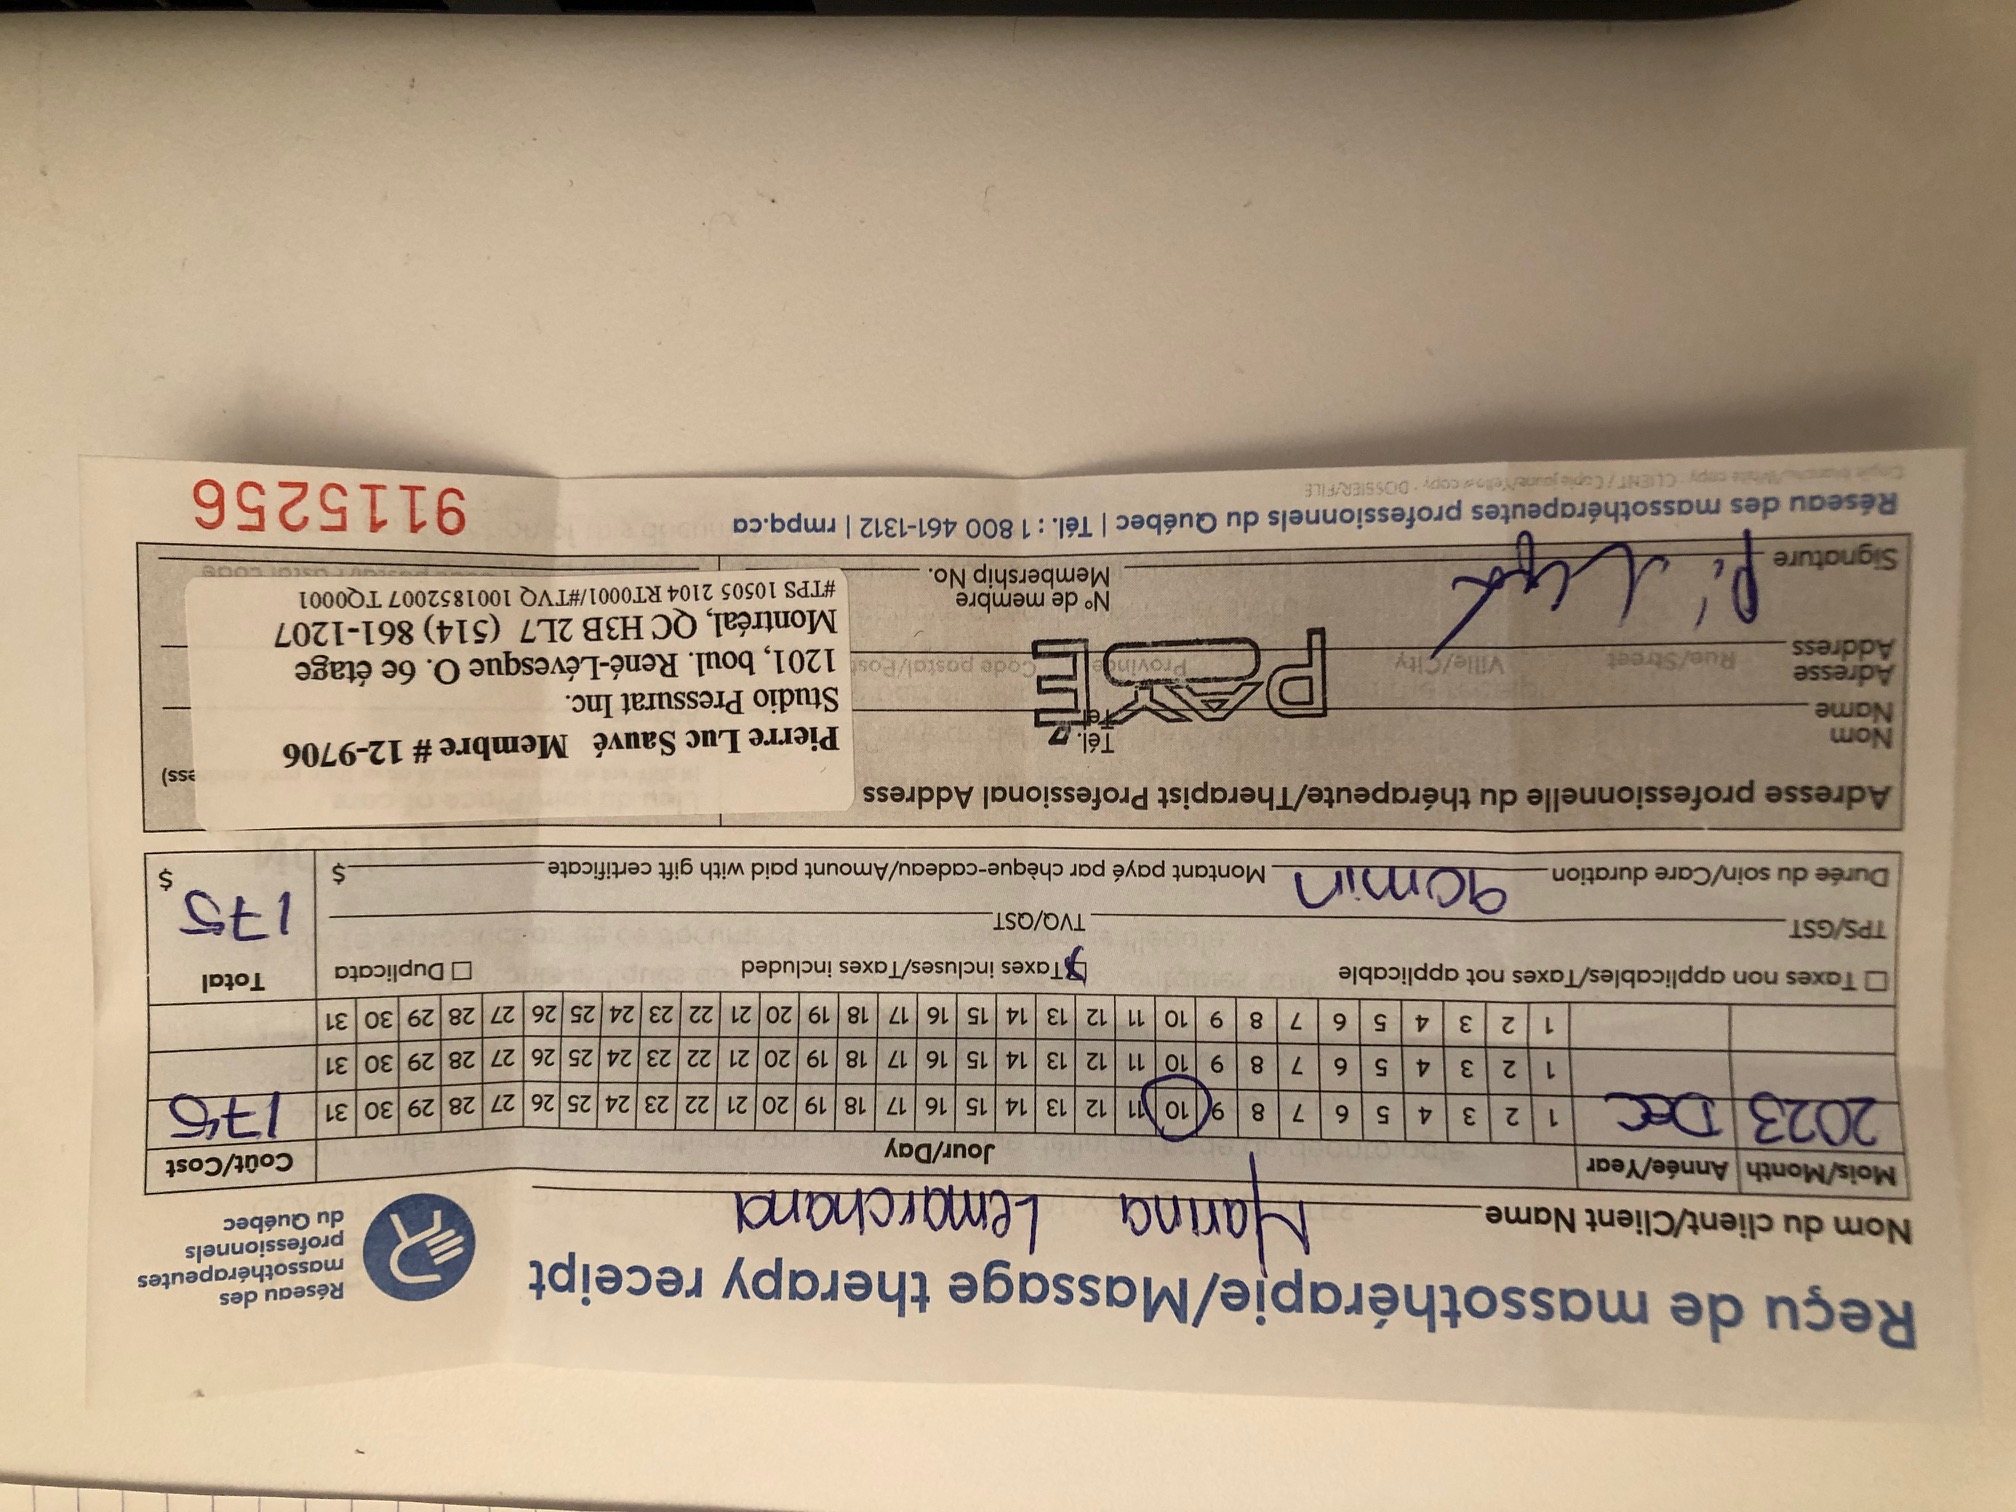 Reçu de massothérapie/Massage therapy receipt
Réseau des
massothérapeutes
professionnels
du Québec
Nom du client/Client Name Marina Lemarchand
Mois/Month Année/Year Jour/Day Coût/Cost
2023 Dec 1 2 3 4 5 6 7 8 9 10 11 12 13 14 15 16 17 18 19 20 21 22 23 24 25 26 27 28 29 30 31 175
1 2 3 4 5 6 7 8 9 10 11 12 13 14 15 16 17 18 19 20 21 22 23 24 25 26 27 28 29 30 31
1 2 3 4 5 6 7 8 9 10 11 12 13 14 15 16 17 18 19 20 21 22 23 24 25 26 27 28 29 30 31
Taxes non applicables/Taxes not applicable Taxes incluses/Taxes included Duplicata Total
TPS/GST TVQ/QST 175 $
Durée du soin/Care duration 90min Montant payé par chèque-cadeau/Amount paid with gift certificate $
Adresse professionnelle du thérapeute/Therapist Professional Address
ess)
Nom Tél.
Name Tel.
PAYÉ
Adresse
Address Rue/Street Ville/City Province Code postal/Post
Pierre Luc Sauvé Membre # 12-9706
Studio Pressurat Inc.
1201, boul. René-Lévesque O. 6e étage
Montréal, QC H3B 2L7 (514) 861-1207
#TPS 10505 2104 RT0001/#TVQ 1001852007 TQ0001
Postal code
N° de membre
Signature Membership No.
Réseau des massothérapeutes professionnels du Québec | Tél. : 1 800 461-1312 | rmpq.ca
9115256
Copie blanche/White copy : CLIENT / Copie jaune/Yellow copy : DOSSIER/FILE